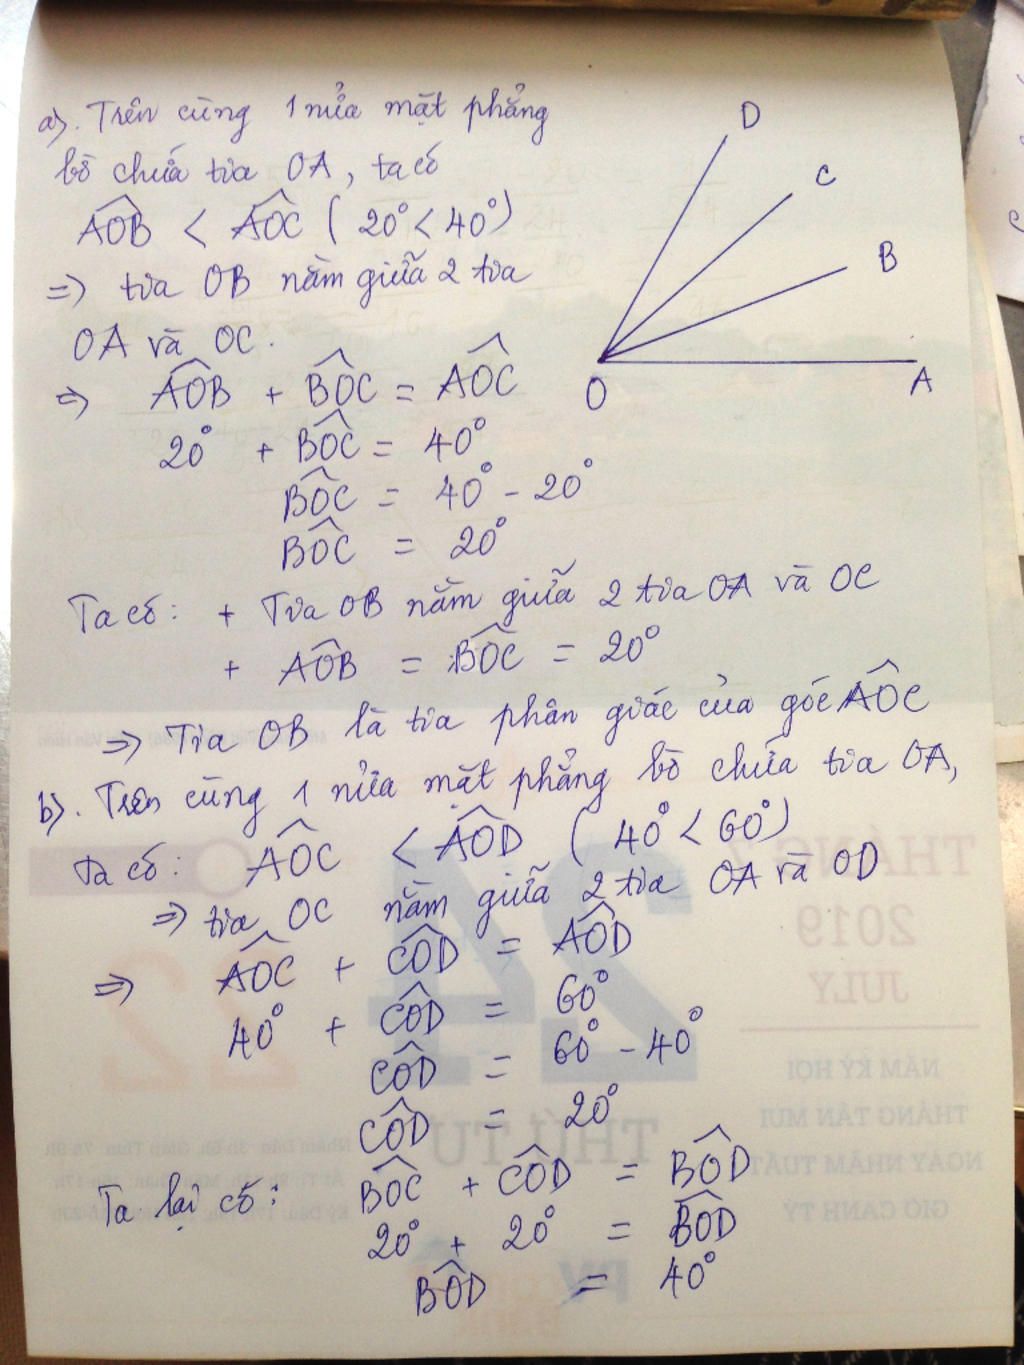 a). Trên cùng 1 nửa mặt phẳng
bờ chứa tia OA, ta có
AOB < AOC ( 20° < 40°)
=> tia OB nằm giữa 2 tia
OA và OC.
=> AOB + BOC = AOC
20° + BOC = 40°
BOC = 40° - 20°
BOC = 20°
D
C
B
O
A
Ta có: + Tia OB nằm giữa 2 tia OA và OC
+ AOB = BOC = 20°
=> Tia OB là tia phân giác của góc AOC
b). Trên cùng 1 nửa mặt phẳng bờ chứa tia OA,
Ta có: AOC < AOD ( 40° < 60°)
=> tia OC nằm giữa 2 tia OA và OD
=> AOC + COD = AOD
40° + COD = 60°
COD = 60° - 40°
COD = 20°
Ta lại có: BOC + COD = BOD
20° + 20° = BOD
BOD = 40°
THÁNG 7
2019
JULY
24
22
NĂM KỶ HỢI
THÁNG TÂN MÙI
NGÀY NHÂM TUẤT
GIỜ CANH TÝ
THỨ TƯ